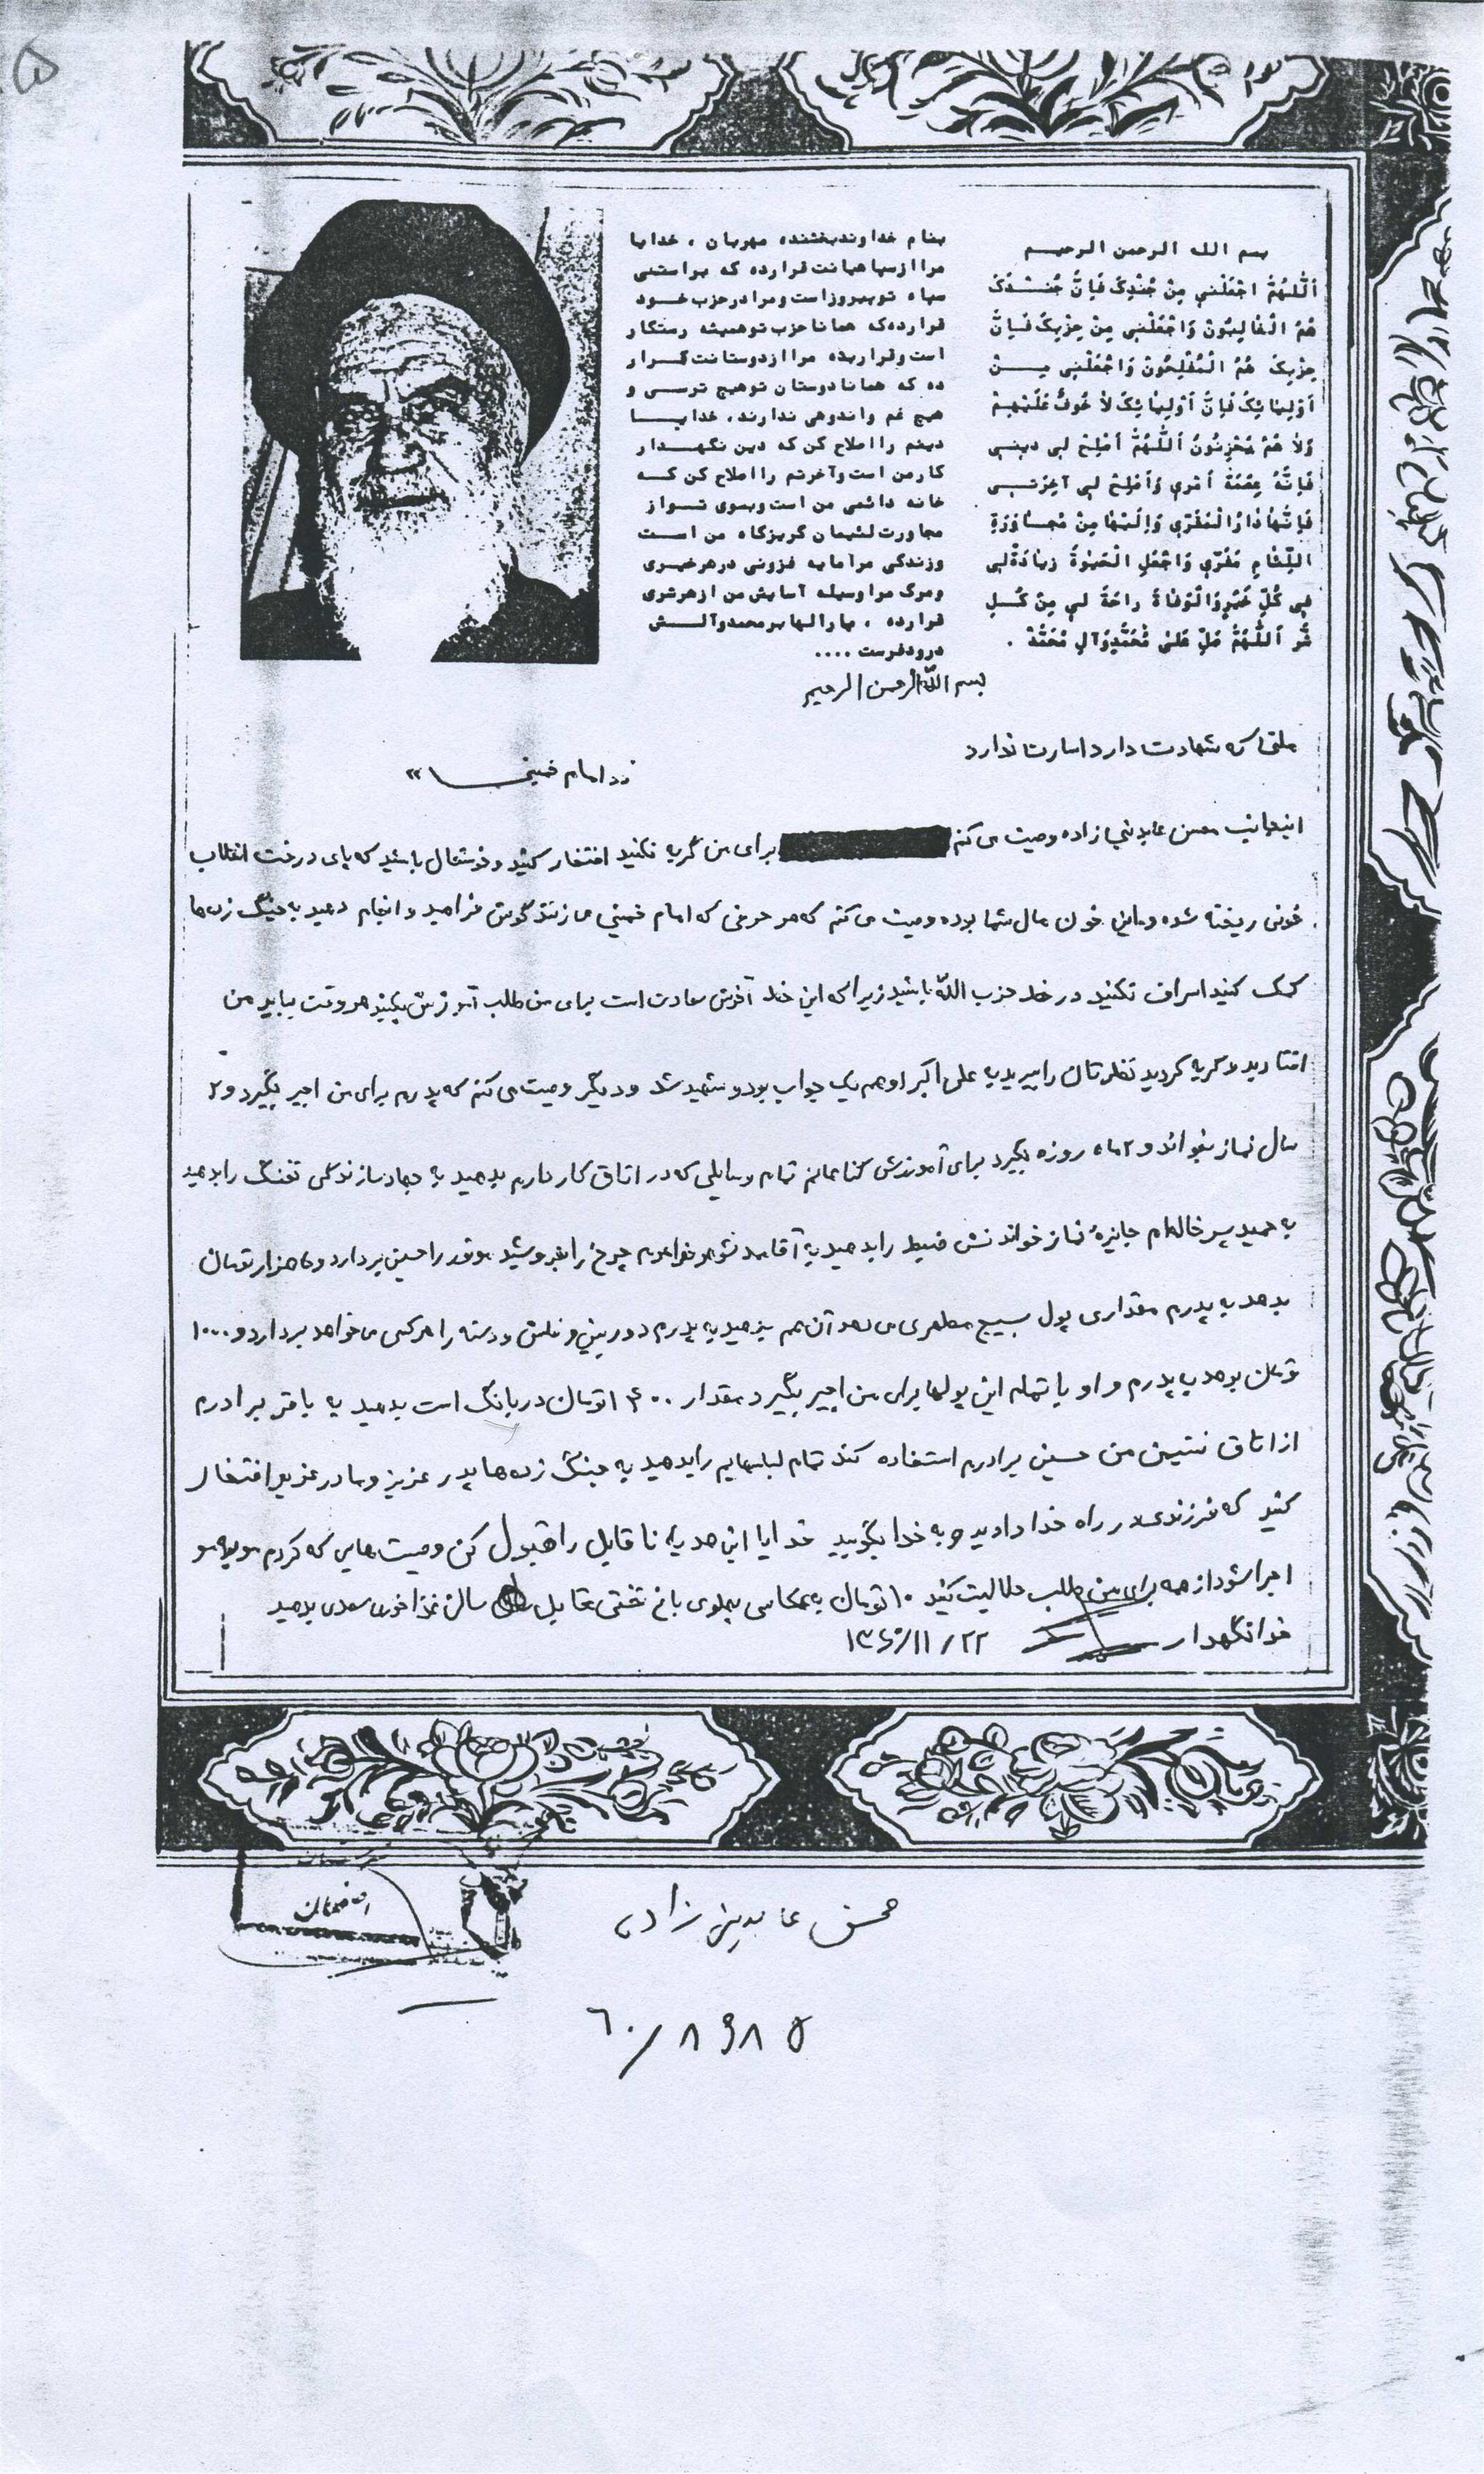 بسم الله الرحمن الرحیم
اَللّهُمَّ اجْعَلْنی مِنْ جُنْدِکَ فَاِنَّ جُنْدَکَ
هُمُ الْغالِبُونَ وَاجْعَلْنی مِنْ حِزْبِکَ فَاِنَّ
حِزْبَکَ هُمُ الْمُفْلِحُونَ وَاجْعَلْنی مِنْ
اَوْلِیائِکَ فَاِنَّ اَوْلِیائَکَ لاخَوْفٌ عَلَیْهِمْ
وَلا هُمْ یَحْزَنُونَ اَللّهُمَّ اَصْلِحْ لی دینی
فَاِنَّهُ عِصْمَةُ اَمْری وَاَصْلِحْ لی آخِرَتی
فَاِنَّها دارُ الْمَقَرّی وَاِلَیْها مِنْ مُجاوَرَةِ
اللِّئامِ مَفَرّی وَاجْعَلِ الْحَیوةَ زِیادَةً لی
فی کُلِّ خَیْرٍ وَالْوَفاةَ راحَةً لی مِنْ کُلِّ
شَرٍّ اَللّهُمَّ صَلِّ عَلی مُحَمَّدٍ وَآلِ مُحَمَّدْ .
بنام خداوندبخشنده مهربان ، خدایا
مرا از سپاهیانت قرارده که براستی
سپاه توپیروزاست ومرا درحزب خود
قرارده که همانا حزب توهمیشه رستگار
است وقراربده مرا ازدوستانت قرار
ده که همانا دوستان توهیچ ترسی و
هیچ غم واندوهی ندارند، خدایا
دینم را اصلاح کن که دین نگهدار
کارمن است وآخرتم را اصلاح کن که
خانه دائمی من است وبسوی تو از
مجاورت لئیمان گریزگاه من است
وزندگی مرا مایه فزونی درهرخیری
ومرگ مرا وسیله آسایش من ازهرشری
قرارده ، بارالها برمحمدوآلش
درودفرست ....
بسم الله الرحمن الرحیم
ملتی که شهادت دارد اسارت ندارد
امام خمینی »
اینجانب محسن عابدینی زاده وصیت می کنم برای من گریه نکنید افتخار کنید و خوشحال باشید که پای درخت انقلاب
خونی ریخته شده و این خون مال شما بوده وصیت می کنم که هر حرفی که امام خمینی می زنند گوش فرا دهید و انجام دهید به جنگ زده ها
کمک کنید اسراف نکنید در خط حزب الله باشید زیرا که این خط آخرش سعادت است برای من طلب آمرزش بکنید هر وقت بیاد من
افتادید و گریه کردید نظرتان را ببرید به علی اکبر او هم یک جوان بود و شهید شد و دیگر وصیت می کنم که پدرم برای من اجیر بگیرد و ۲
سال نماز بخواند و ۲ ماه روزه بگیرد برای آمرزش گناهانم تمام وسایلی که در اتاق کار دارم بدهید به جهاد سازندگی تفنگ را بدهید
به حمید پسر خاله ام جایزهٔ نماز خواندنش ضبط را بدهید به آقا شوهر خواهرم چرخ را بفروشید موتور را حسین بردارد و هزار تومان
بدهد به پدرم مقداری پول بسیج مطهری می دهد آن هم بدهید به پدرم دوربین و فلش و دسته را هر کس می خواهد بردارد و ۱۰۰۰
تومان بدهد به پدرم و او با تمام این پولها برای من اجیر بگیرد مقدار تومان در بانک است بدهید به باقر برادرم
از اتاق نشیمن من حسین برادرم استفاده کند تمام لباسهایم را بدهید به جنگ زده ها پدر عزیز و مادر عزیزم افتخار
کنید که فرزندی در راه خدا دادید و به خدا بگویید خدایا این هدیه ناقابل را قبول کن وصیت هایی که کردم مو به مو
اجرا شود از همه برای من طلب حلالیت کنید ۱۰ تومان به عکاسی پهلوی باغ تختی مقابل سالن غذاخوری سعدی بدهید
خدانگهدار ۱۳۶۰/۱۱/۲۲
محسن عابدینی زاده
۶۰/۸۹۸۵